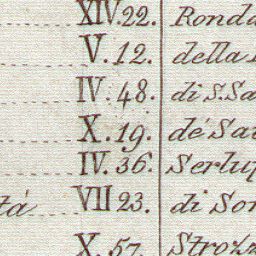 XIV.22. Ronda
V.12. della
IV.48. di S.Sa
X.19. dé Sau
IV.36. Serlup
tá VII 23. di Sor
X.57. Strozz